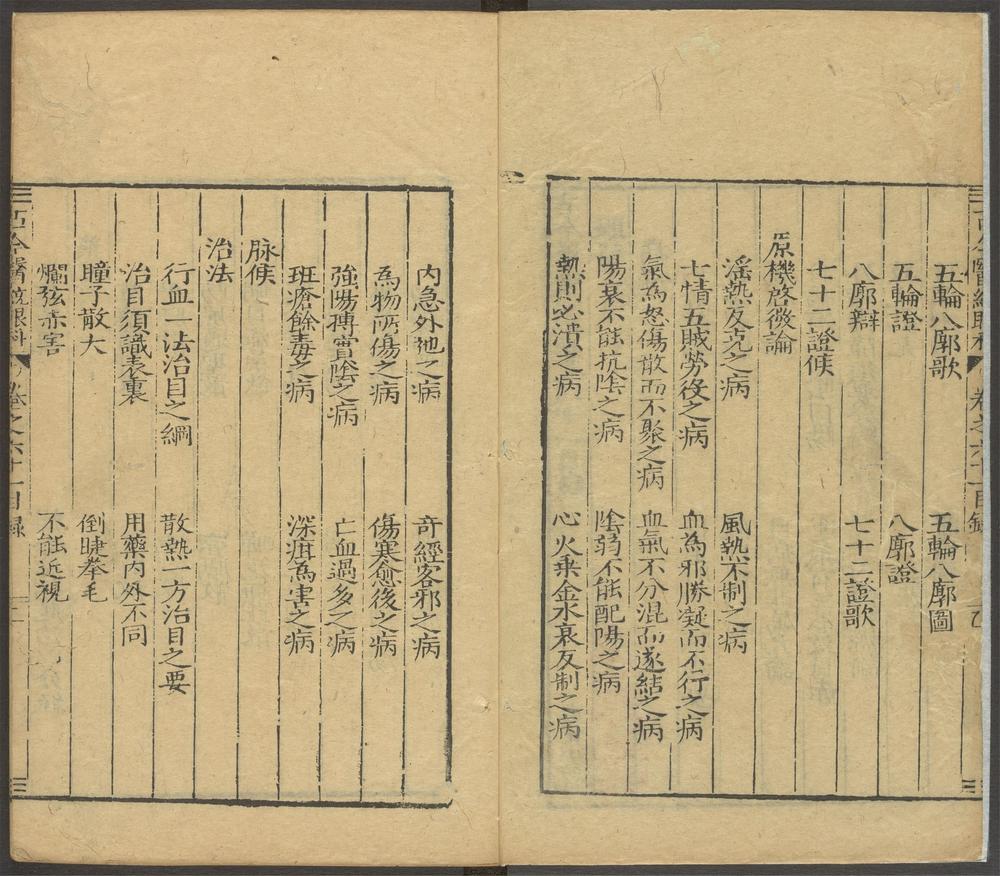 五輪八廓歌　五輪八廓圖
五輪證　八廓證
八廓辯　七十二證歌
七十二證候
原機啓微論
淫熱反克之病　風熱不制之病
七情五賊勞役之病　血為邪勝凝而不行之病
氣為怒傷散而不聚之病　血氣不分混而遂結之病
陽衰不能抗陰之病　陰弱不能配陽之病
熱則必潰之病　心火乗金水衰反制之病
内急外弛之病　竒經客邪之病
為物所傷之病　傷寒愈後之病
強陽摶實陰之病　亡血過多之病
斑瘡餘毒之病　深疳為害之病
脉候
治法
行血一法治目之綱　散熱一方治目之要
治目須識表裏　用藥内外不同
瞳子散大　倒睫拳毛
爛弦赤害　不能近視
卷之六十一目録